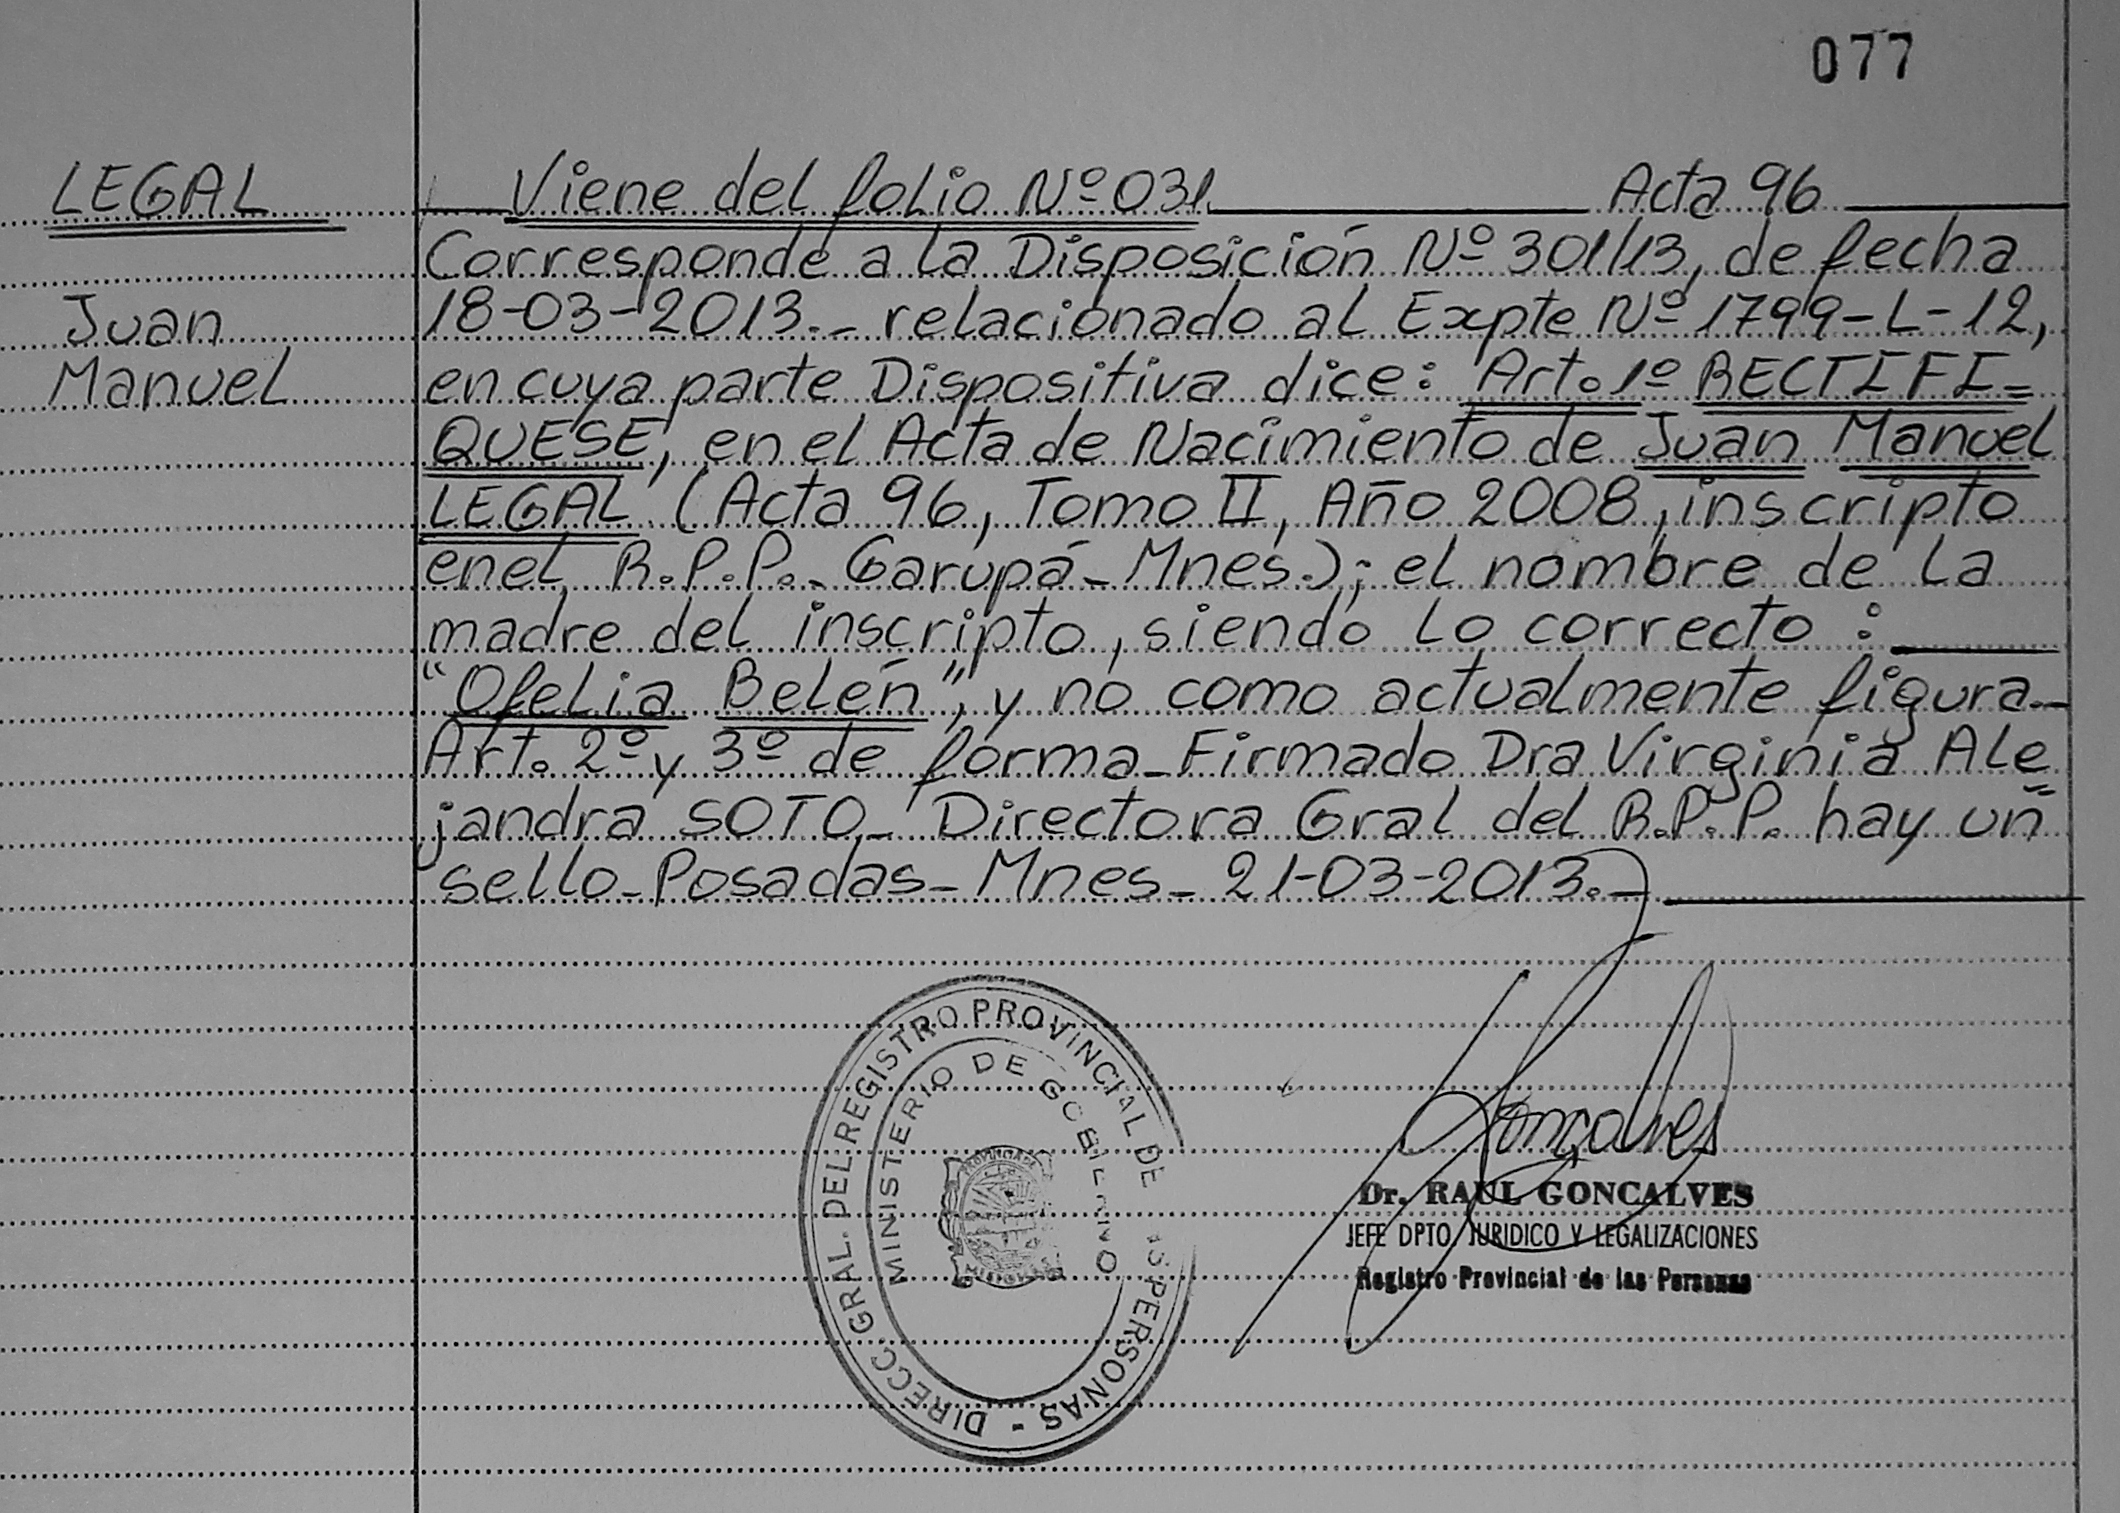 077
LEGAL
Juan
Manuel
Viene del folio Nº 031. Acta 96
Corresponde a la Disposición Nº 301/13, de fecha
18-03-2013.- relacionado al Expte Nº 1799-L-12,
en cuya parte Dispositiva dice: Art. 1º RECTIFI=
QUESE, en el Acta de Nacimiento de Juan Manuel
LEGAL (Acta 96, Tomo II, Año 2008, inscripto
en el R.P.P.- Garupá- Mnes.); el nombre de la
madre del inscripto, siendo lo correcto:
"Ofelia Belén", y no como actualmente figura-
Art. 2º y 3º de forma- Firmado Dra Virginia Ale=
jandra SOTO- Directora Gral del R.P.P. hay un
sello- Posadas- Mnes- 21-03-2013.-
DIRECC. GRAL. DEL REGISTRO PROVINCIAL DE LAS PERSONAS -
MINISTERIO DE GOBIERNO
PROVINCIA DE
MISIONES
Goncalves
Dr. RAUL GONCALVES
JEFE DPTO JURIDICO Y LEGALIZACIONES
Registro Provincial de las Personas